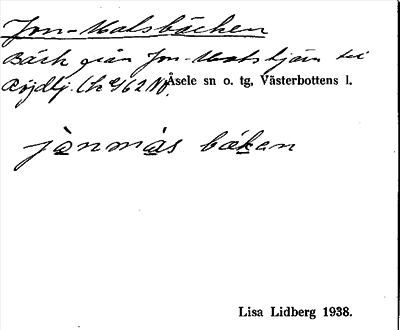 Jon-Matsbäcken
Bäck från Jon-Matstjärn till
Röjdtj. Åsele sn o. tg, Västerbottens l.
jònmàs bäkan
Lisa Lidberg 1938.